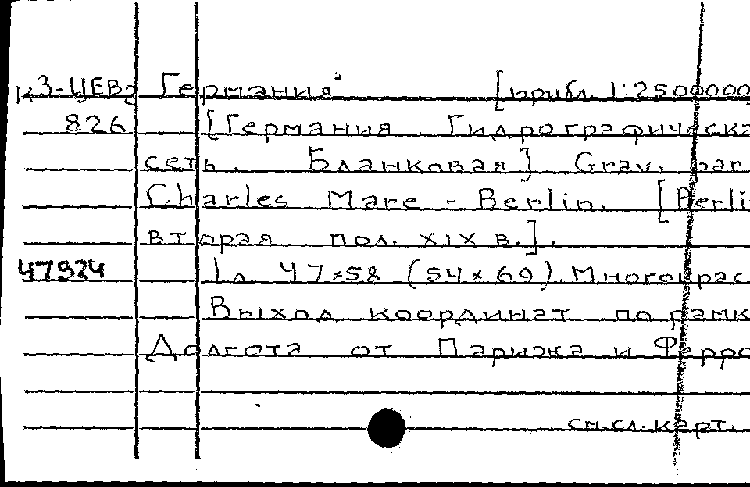 К3-ЦЕВг Германия [прибл. 1:2500000
826 [Германия Гидрографическа
сеть. Бланковая] Grav. par
Charles Mare - Berlin. [Berli
вторая пол. XIX в.].
47924 1л 47×58 (54×69). Многокрас
Выход координат по рамк
Долгота от Парижа и Ферро
см.сл.карт.